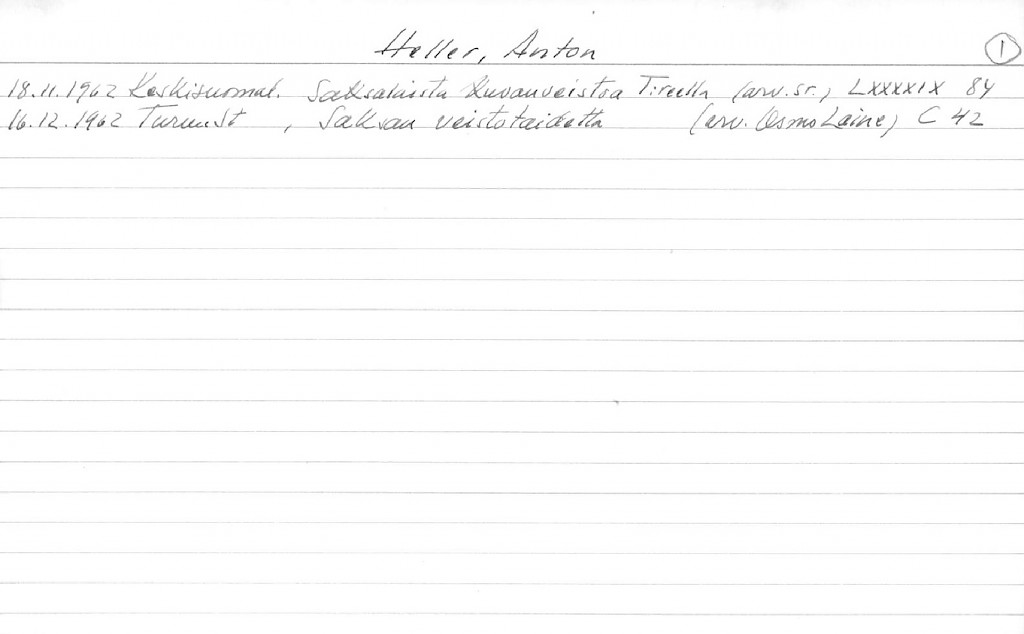 Heller, Anton
1
18.11.1962 Keskisuomal. Saksalaista kuvanveistoa (arv. sr.) LXXXXIX 84
16.12.1962 Turun St , Saksan veistotaidetta (arv. Osmo Laine) C 42